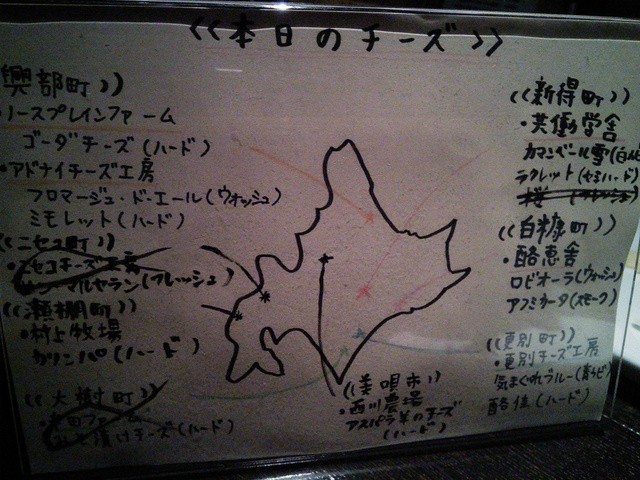 《本日のチーズ》
興部町》
・ノースプレインファーム
ゴーダチーズ(ハード)
・アドナイチーズ工房
フロマージュ・ド・エール(ウォッシュ)
ミモレット(ハード)
《ニセコ町》
・ニセコチーズ工房
マルセラン(フレッシュ)
《瀬棚町》
・村上牧場
カリンパ(ハード)
《大樹町》
ファーム
みそ漬けチーズ(ハード)
《美唄市》
・西川農場
アスパラ羊のチーズ
(ハード)
《新得町》
・共働学舎
カマンベール雪(白カビ
ラクレット(セミハード)
桜(フレッシュ)
《白糠町》
・酪恵舎
ロビオーラ(ウォッシュ)
アフミカータ(スモーク)
《更別町》
・更別チーズ工房
気まぐれブルー(青カビ)
酪佳(ハード)